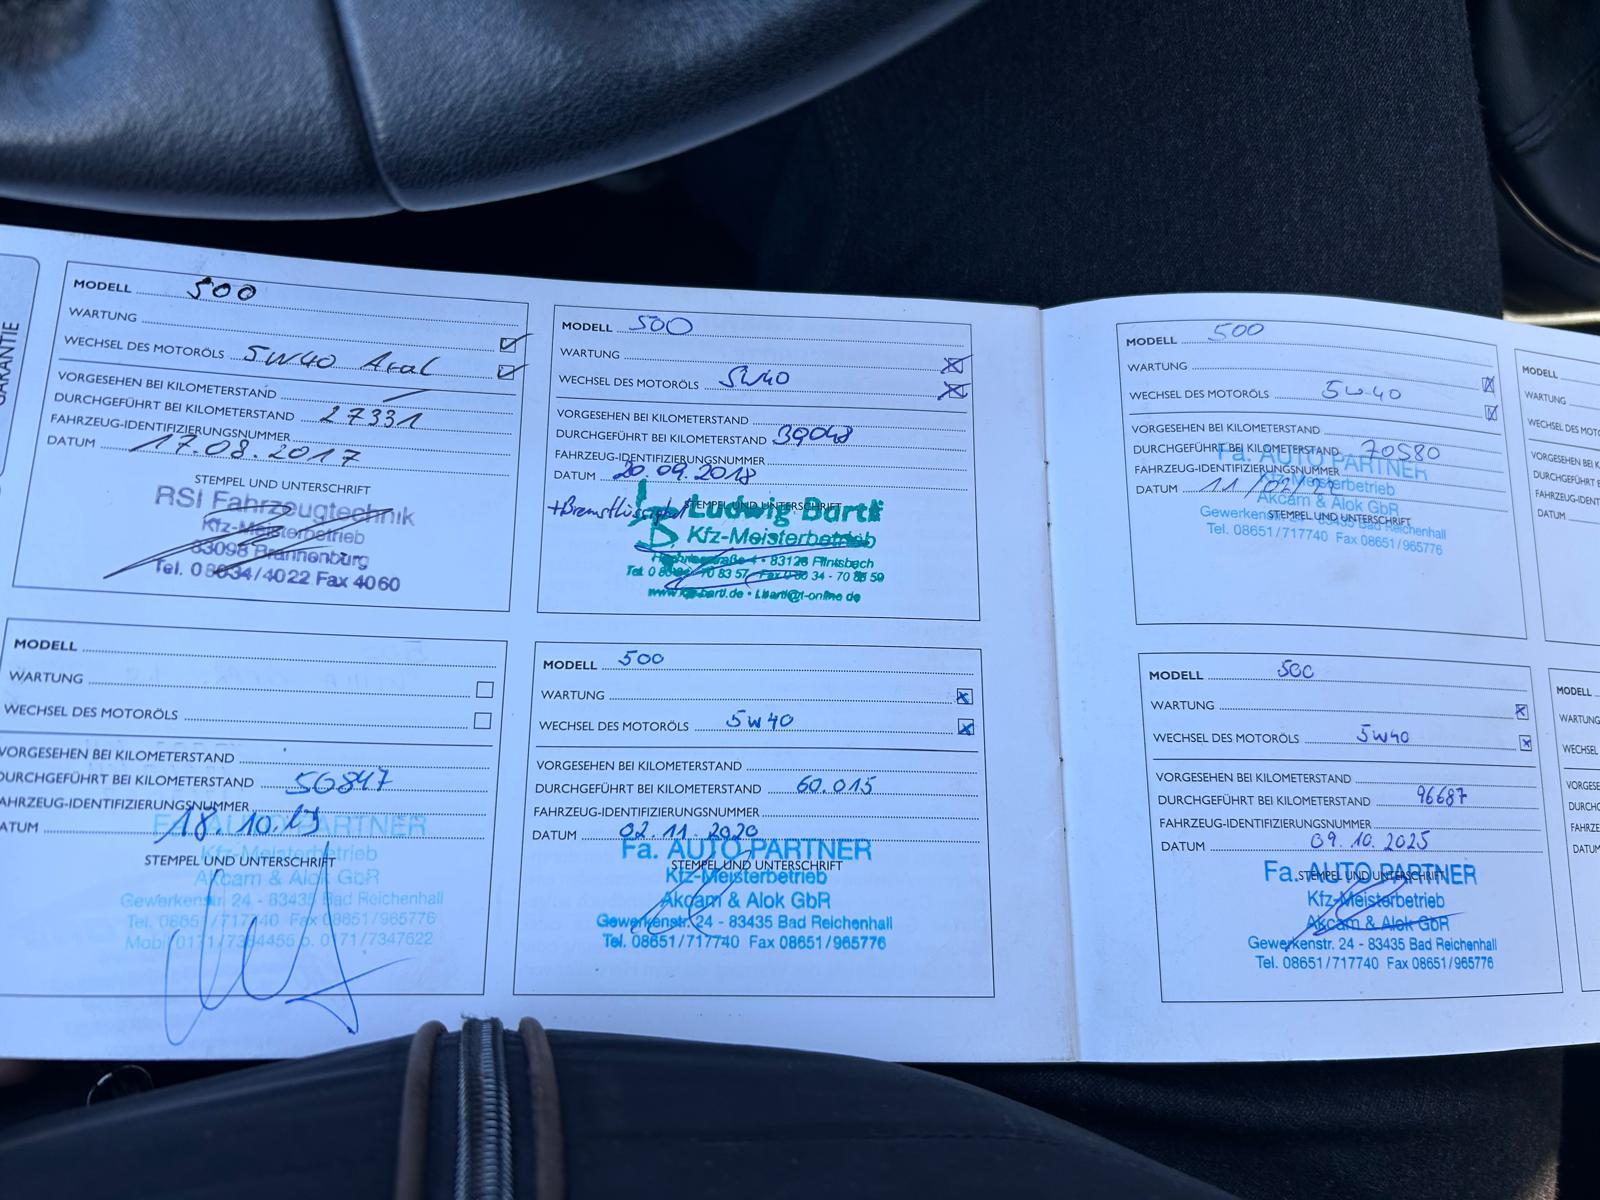 GARANTIE
MODELL 500
WARTUNG
WECHSEL DES MOTORÖLS 5W40 Aral
VORGESEHEN BEI KILOMETERSTAND
DURCHGEFÜHRT BEI KILOMETERSTAND 27331
FAHRZEUG-IDENTIFIZIERUNGSNUMMER
DATUM 17.08.2017
STEMPEL UND UNTERSCHRIFT
RSI Fahrzeugtechnik
Kfz-Meisterbetrieb
83098 Brannenburg
Tel. 08034/4022 Fax 4060
MODELL 500
WARTUNG
WECHSEL DES MOTORÖLS 5W40
VORGESEHEN BEI KILOMETERSTAND
DURCHGEFÜHRT BEI KILOMETERSTAND 39048
FAHRZEUG-IDENTIFIZIERUNGSNUMMER
DATUM 20.09.2018
+Bremsflüssigkeit
STEMPEL UND UNTERSCHRIFT
Ludwig Bartl
Kfz-Meisterbetrieb
83126 Flintsbach
MODELL
WARTUNG
WECHSEL DES MOTORÖLS
VORGESEHEN BEI KILOMETERSTAND
DURCHGEFÜHRT BEI KILOMETERSTAND 50847
FAHRZEUG-IDENTIFIZIERUNGSNUMMER
DATUM 18.10.19
FA. AUTO PARTNER
STEMPEL UND UNTERSCHRIFT
Kfz-Meisterbetrieb
Akcam & Alok GbR
Gewerkenstr. 24 - 83435 Bad Reichenhall
Tel. 08651/717740 Fax 08651/965776
MODELL 500
WARTUNG
WECHSEL DES MOTORÖLS 5W40
VORGESEHEN BEI KILOMETERSTAND
DURCHGEFÜHRT BEI KILOMETERSTAND 60.015
FAHRZEUG-IDENTIFIZIERUNGSNUMMER
DATUM 02.11.2020
Fa. AUTO PARTNER
STEMPEL UND UNTERSCHRIFT
Kfz-Meisterbetrieb
Akcam & Alok GbR
Gewerkenstr. 24 - 83435 Bad Reichenhall
Tel. 08651/717740 Fax 08651/965776
MODELL 500
WARTUNG
WECHSEL DES MOTORÖLS 5W40
VORGESEHEN BEI KILOMETERSTAND
DURCHGEFÜHRT BEI KILOMETERSTAND 70580
Fa. AUTO PARTNER
FAHRZEUG-IDENTIFIZIERUNGSNUMMER
Kfz-Meisterbetrieb
DATUM 11/02/22
Akcam & Alok GbR
STEMPEL UND UNTERSCHRIFT
Gewerkenstr. 24 - 83435 Bad Reichenhall
Tel. 08651/717740 Fax 08651/965776
MODELL 500
WARTUNG
WECHSEL DES MOTORÖLS 5W40
VORGESEHEN BEI KILOMETERSTAND
DURCHGEFÜHRT BEI KILOMETERSTAND 96687
FAHRZEUG-IDENTIFIZIERUNGSNUMMER
DATUM 09.10.2025
Fa. AUTO PARTNER
STEMPEL UND UNTERSCHRIFT
Kfz-Meisterbetrieb
Akcam & Alok GbR
Gewerkenstr. 24 - 83435 Bad Reichenhall
Tel. 08651/717740 Fax 08651/965776
MODELL
WARTUNG
DATUM
MODELL
WARTUNG
WECHSEL
DATUM